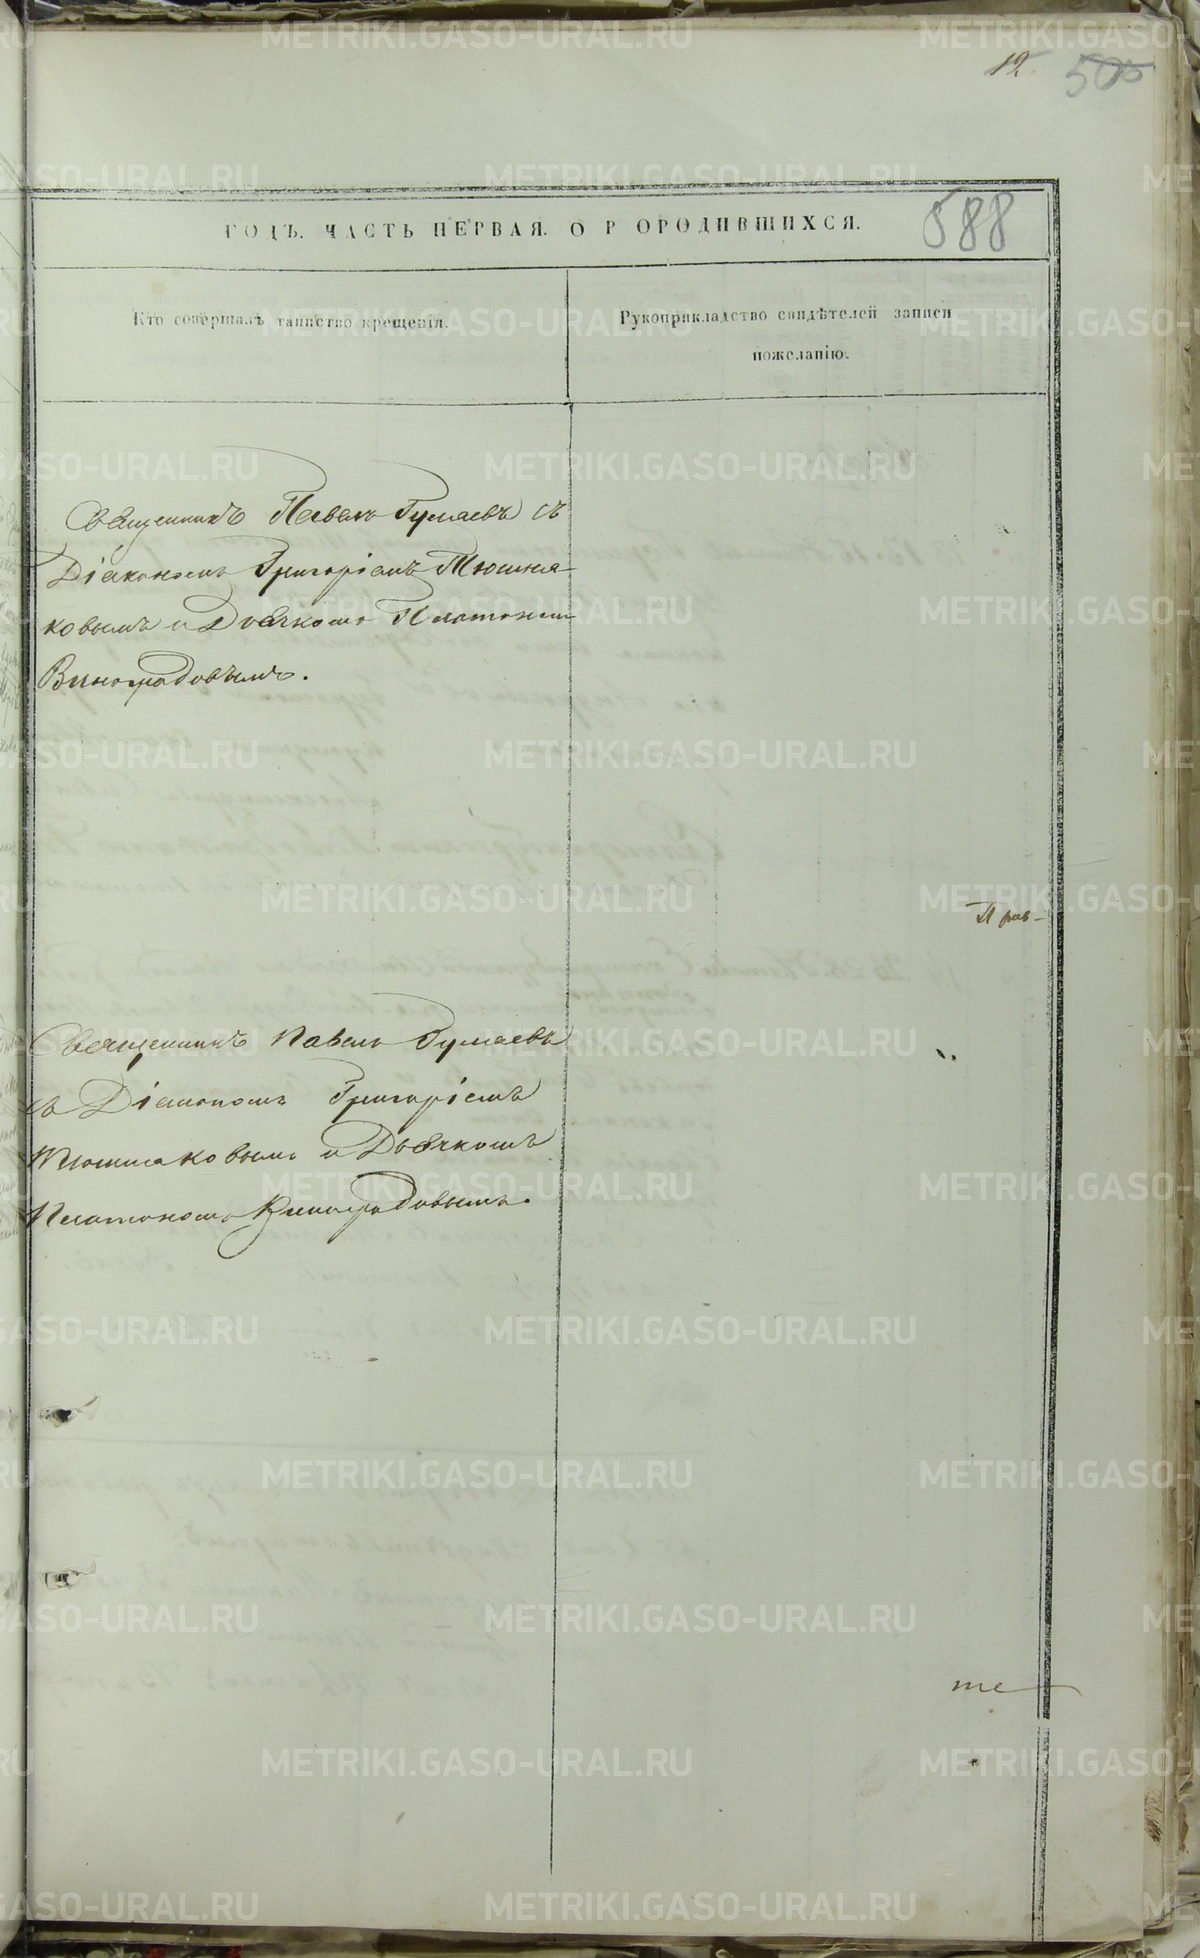 12.
505
588
ГОДЪ. ЧАСТЬ ПЕРВАЯ. О Р ОРОДИВШИХСЯ.
Кто совершалъ таинство крещенія.
Рукоприкладство свидѣтелей записи
пожеланію.
Священникъ Павелъ Гумаевъ съ
Діакономъ Григоріемъ Тюшня-
ковымъ и Дьячкомъ Платономъ
Виноградовымъ.
При-
Священникъ Павелъ Гумаевъ
съ Діакономъ Григоріемъ
Тюшняковымъ и Дьячкомъ
Платономъ Виноградовымъ.
те
METRIKI.GASO-URAL.RU